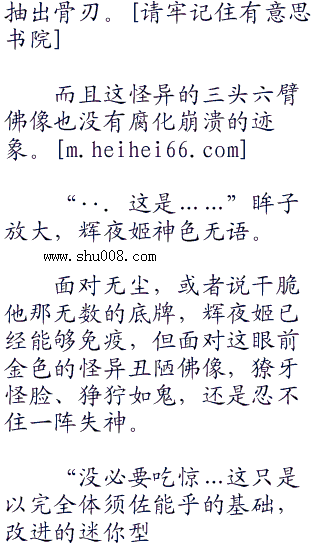 抽出骨刃。[请牢记住有意思
书院]
而且这怪异的三头六臂
佛像也没有腐化崩溃的迹
象。[m.heihei66.com]
“··．这是……”眸子
放大，辉夜姬神色无语。
www.shu008.com
面对无尘，或者说干脆
他那无数的底牌，辉夜姬已
经能够免疫，但面对这眼前
金色的怪异丑陋佛像，獠牙
怪脸、狰狞如鬼，还是忍不
住一阵失神。
“没必要吃惊…这只是
以完全体须佐能乎的基础，
改进的迷你型